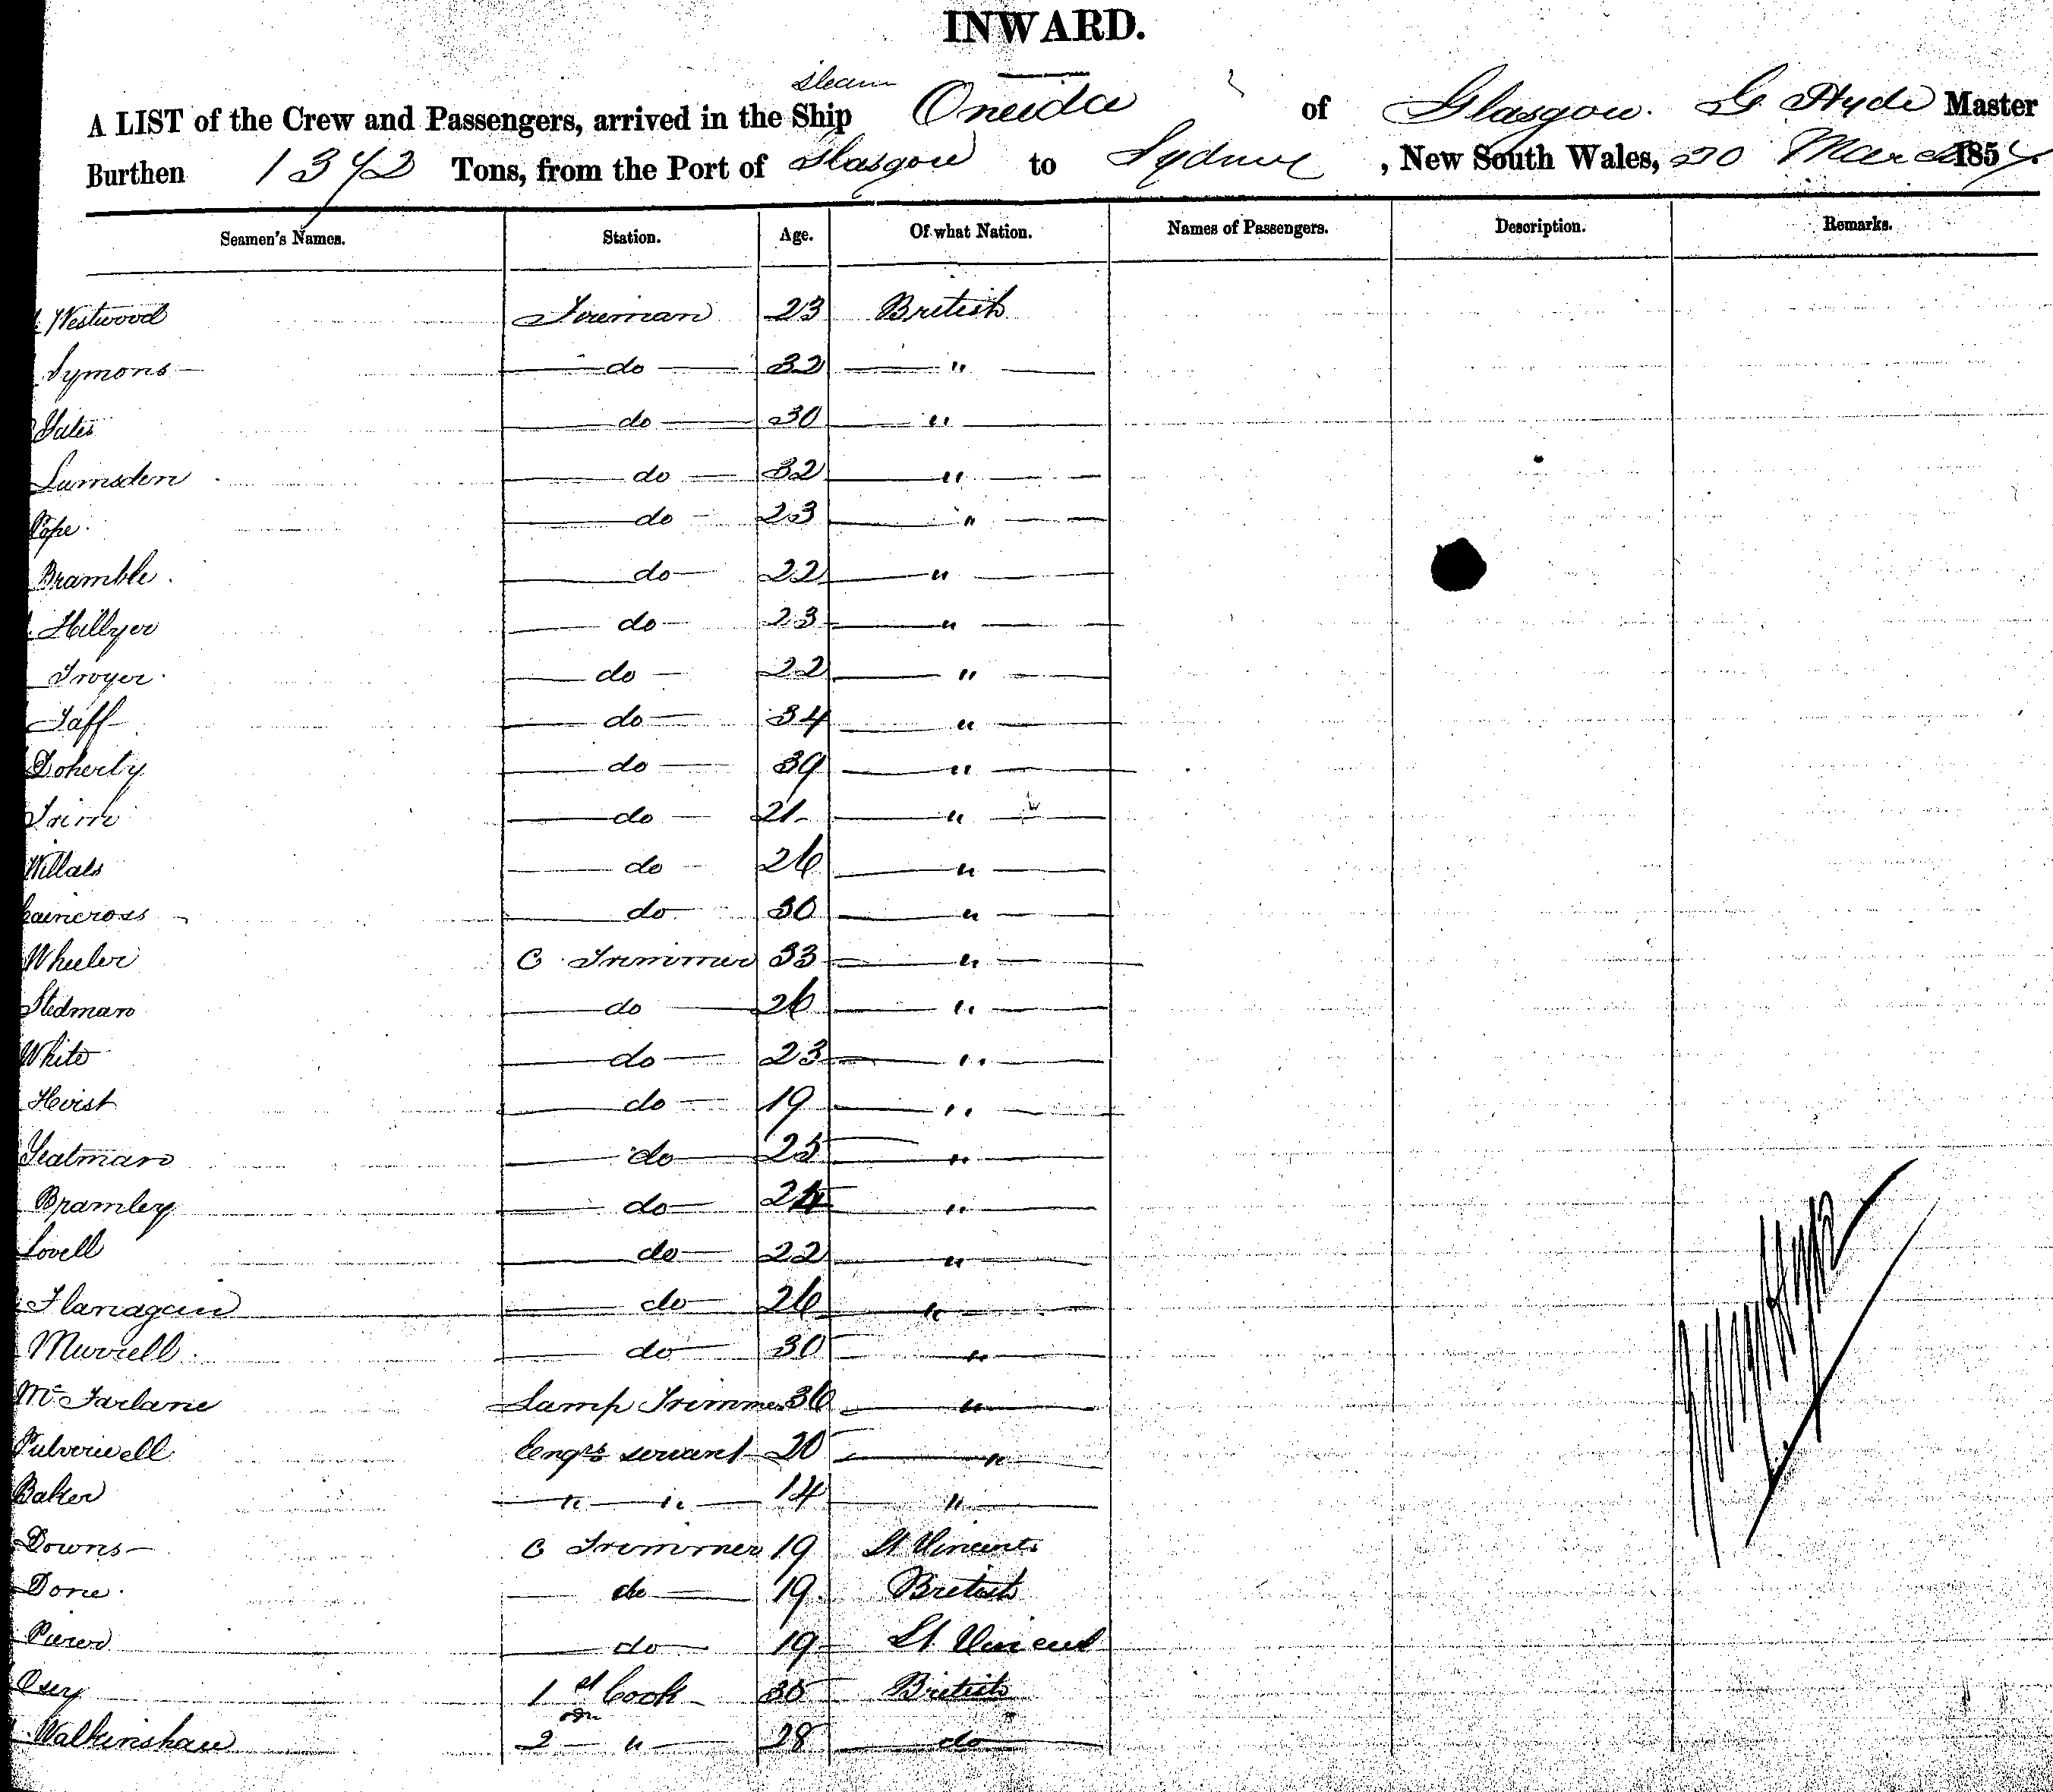 INWARD.
A LIST of the Crew and Passengers, arrived in the Steam Ship Oneida of Glasgow. G Hyde Master
Burthen 1372 Tons, from the Port of Glasgow to Sydney, New South Wales, 20 March 185
Seamen's Names. Station. Age. Of what Nation. Names of Passengers. Description. Remarks.
Westwood Fireman 23 British
Symons do 32 "
Yates do 30 "
Lumsden do 32 "
Pope do 23 "
Bramble do 22 "
Hillyer do 23 "
Troyer do 22 "
Taff do 34 "
Doherty do 39 "
Trim do 21 "
Willats do 26 "
Caincross do 30 "
Wheeler C Trimmer 33 "
Stedman do 26 "
White do 23 "
Hoist do 19 "
Yeatman do 25 "
Bramley do 24 "
Lovell do 22 "
Flanagan do 26 "
Murrell do 30 "
McFarlane Lamp Trimmer 36 "
Pulverwell Engrs servant 20 "
Baker " " 14 "
Downs C Trimmer 19 St Vincents
Dore do 19 British
do 19 St Vincent
Osey 1st Cook 35 British
Walkinshaw 2 " 28 do